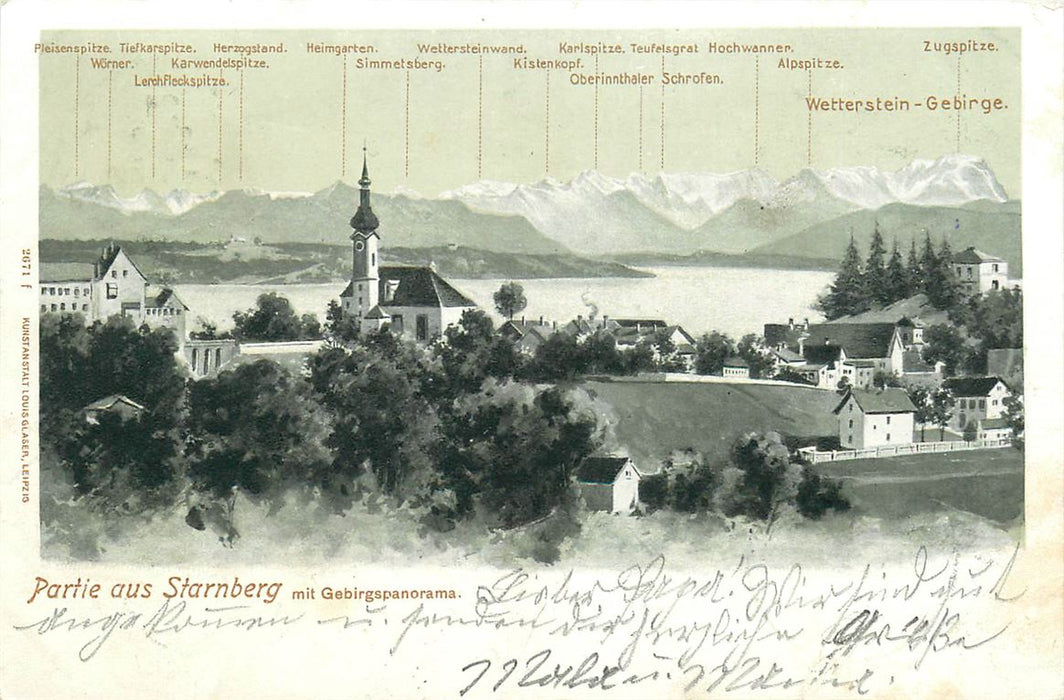 Pleisenspitze. Tiefkarspitze. Herzogstand. Heimgarten. Wettersteinwand. Karlspitze. Teufelsgrat Hochwanner. Zugspitze.
Wörner. Karwendelspitze. Simmetsberg. Kistenkopf. Alpspitze.
Lerchfleckspitze. Oberinnthaler Schrofen.
Wetterstein-Gebirge.
2671 f KUNSTANSTALT LOUIS GLASER, LEIPZIG
Partie aus Starnberg mit Gebirgspanorama.
Lieber Papa! Wir sind gut
angekommen u. senden dir herzliche Grüße
u. Maria.